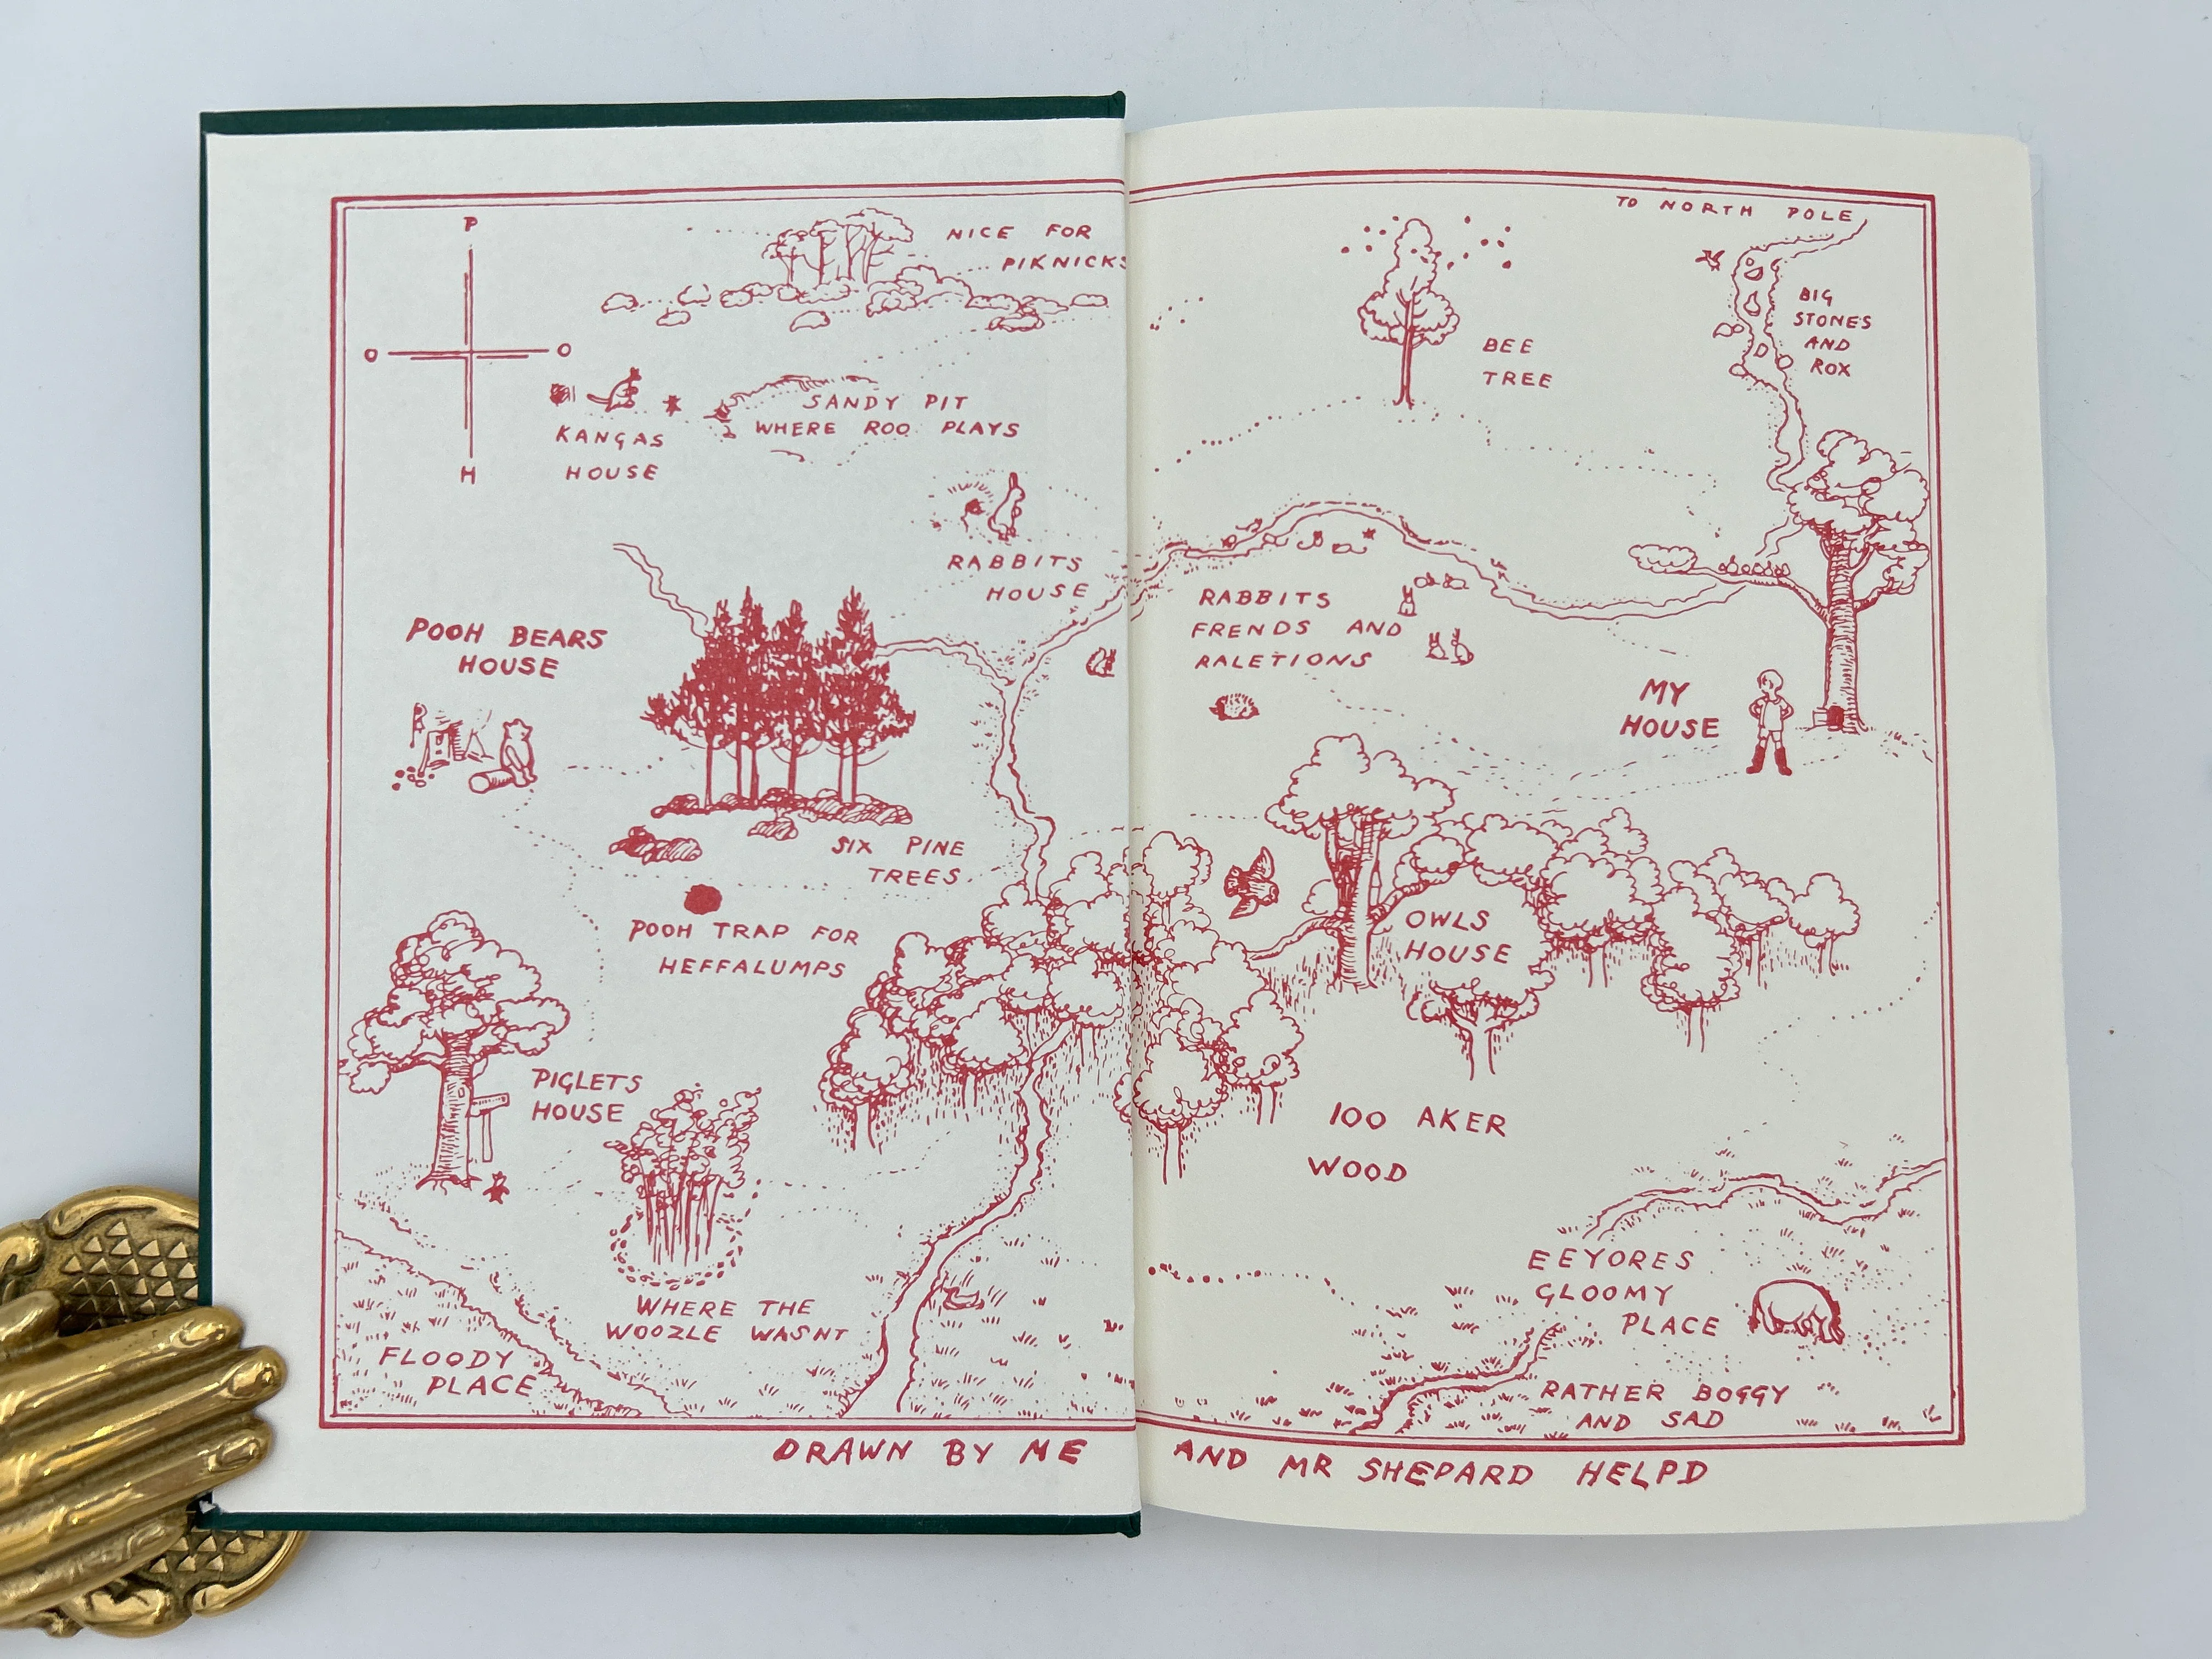 P
O O
H
NICE FOR
PIKNICKS
TO NORTH POLE
BIG
STONES
AND
ROX
BEE
TREE
KANGAS
HOUSE
SANDY PIT
WHERE ROO PLAYS
RABBITS
HOUSE
RABBITS
FRENDS AND
RALETIONS
POOH BEARS
HOUSE
MY
HOUSE
SIX PINE
TREES
POOH TRAP FOR
HEFFALUMPS
OWLS
HOUSE
PIGLETS
HOUSE
100 AKER
WOOD
WHERE THE
WOOZLE WASNT
FLOODY
PLACE
EEYORES
GLOOMY
PLACE
RATHER BOGGY
AND SAD
DRAWN BY ME AND MR SHEPARD HELPD